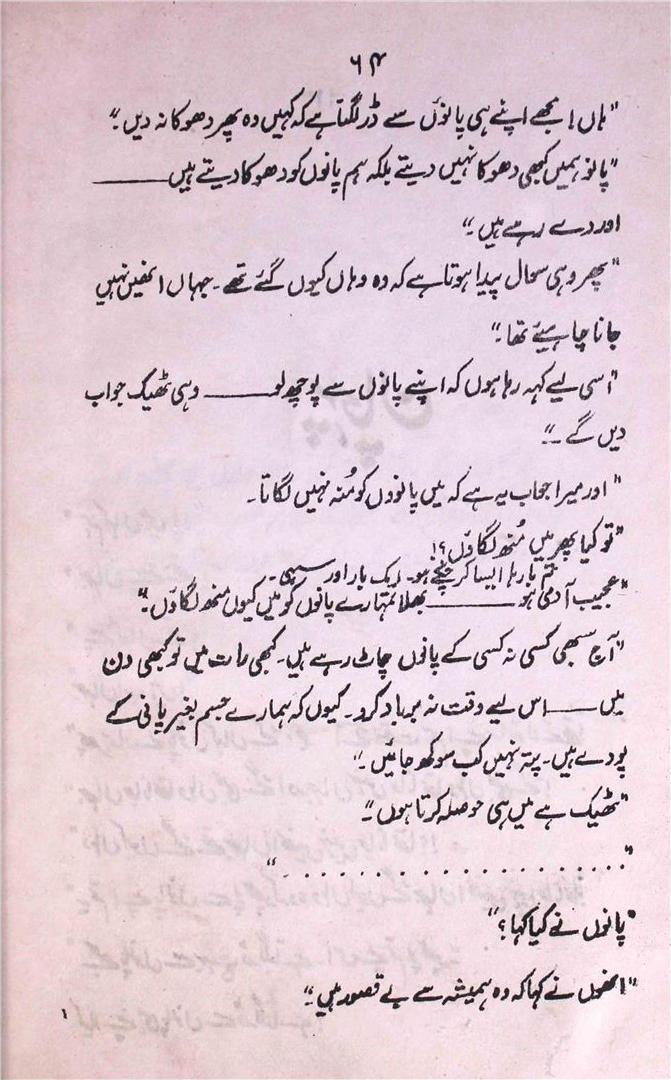 ۶۴
"ہاں! مجھے اپنے ہی پانوں سے ڈر لگتا ہے کہ کہیں وہ پھر دھوکا نہ دیں۔"
"پانو ہمیں کبھی دھوکا نہیں دیتے بلکہ ہم پانوں کو دھوکا دیتے ہیں ——
اور دے رہے ہیں۔"
"پھر وہی سوال پیدا ہوتا ہے کہ وہ وہاں کیوں گئے تھے۔ جہاں انھیں نہیں
جانا چاہیئے تھا۔"
"اسی لیے کہہ رہا ہوں کہ اپنے پانوں سے پوچھ لو —— وہی ٹھیک جواب
دیں گے۔"
"اور میرا جواب یہ ہے کہ میں پانووں کو مُنہ نہیں لگاتا۔
"تو کیا پھر میں مُنھ لگاوں؟!
تم بارہا ایسا کر چکے ہو۔ ایک بار اور سہی۔
"عجیب آدمی ہو —— بھلا تمہارے پانوں کو میں کیوں منھ لگاوں۔"
"آج سبھی کسی نہ کسی کے پانوں چاٹ رہے ہیں۔ کبھی رات میں تو کبھی دن
میں —— اس لیے وقت نہ برباد کرو۔ کیوں کہ ہمارے جسم بغیر پانی کے
پودے ہیں۔ پتہ نہیں کب سوکھ جائیں۔"
"ٹھیک ہے میں ہی حوصلہ کرتا ہوں۔"
". . . . . . . . . . . . . . . . . . ۔"
"پانوں نے کیا کہا؟"
"انھوں نے کہا کہ وہ ہمیشہ سے بے قصور ہیں۔"